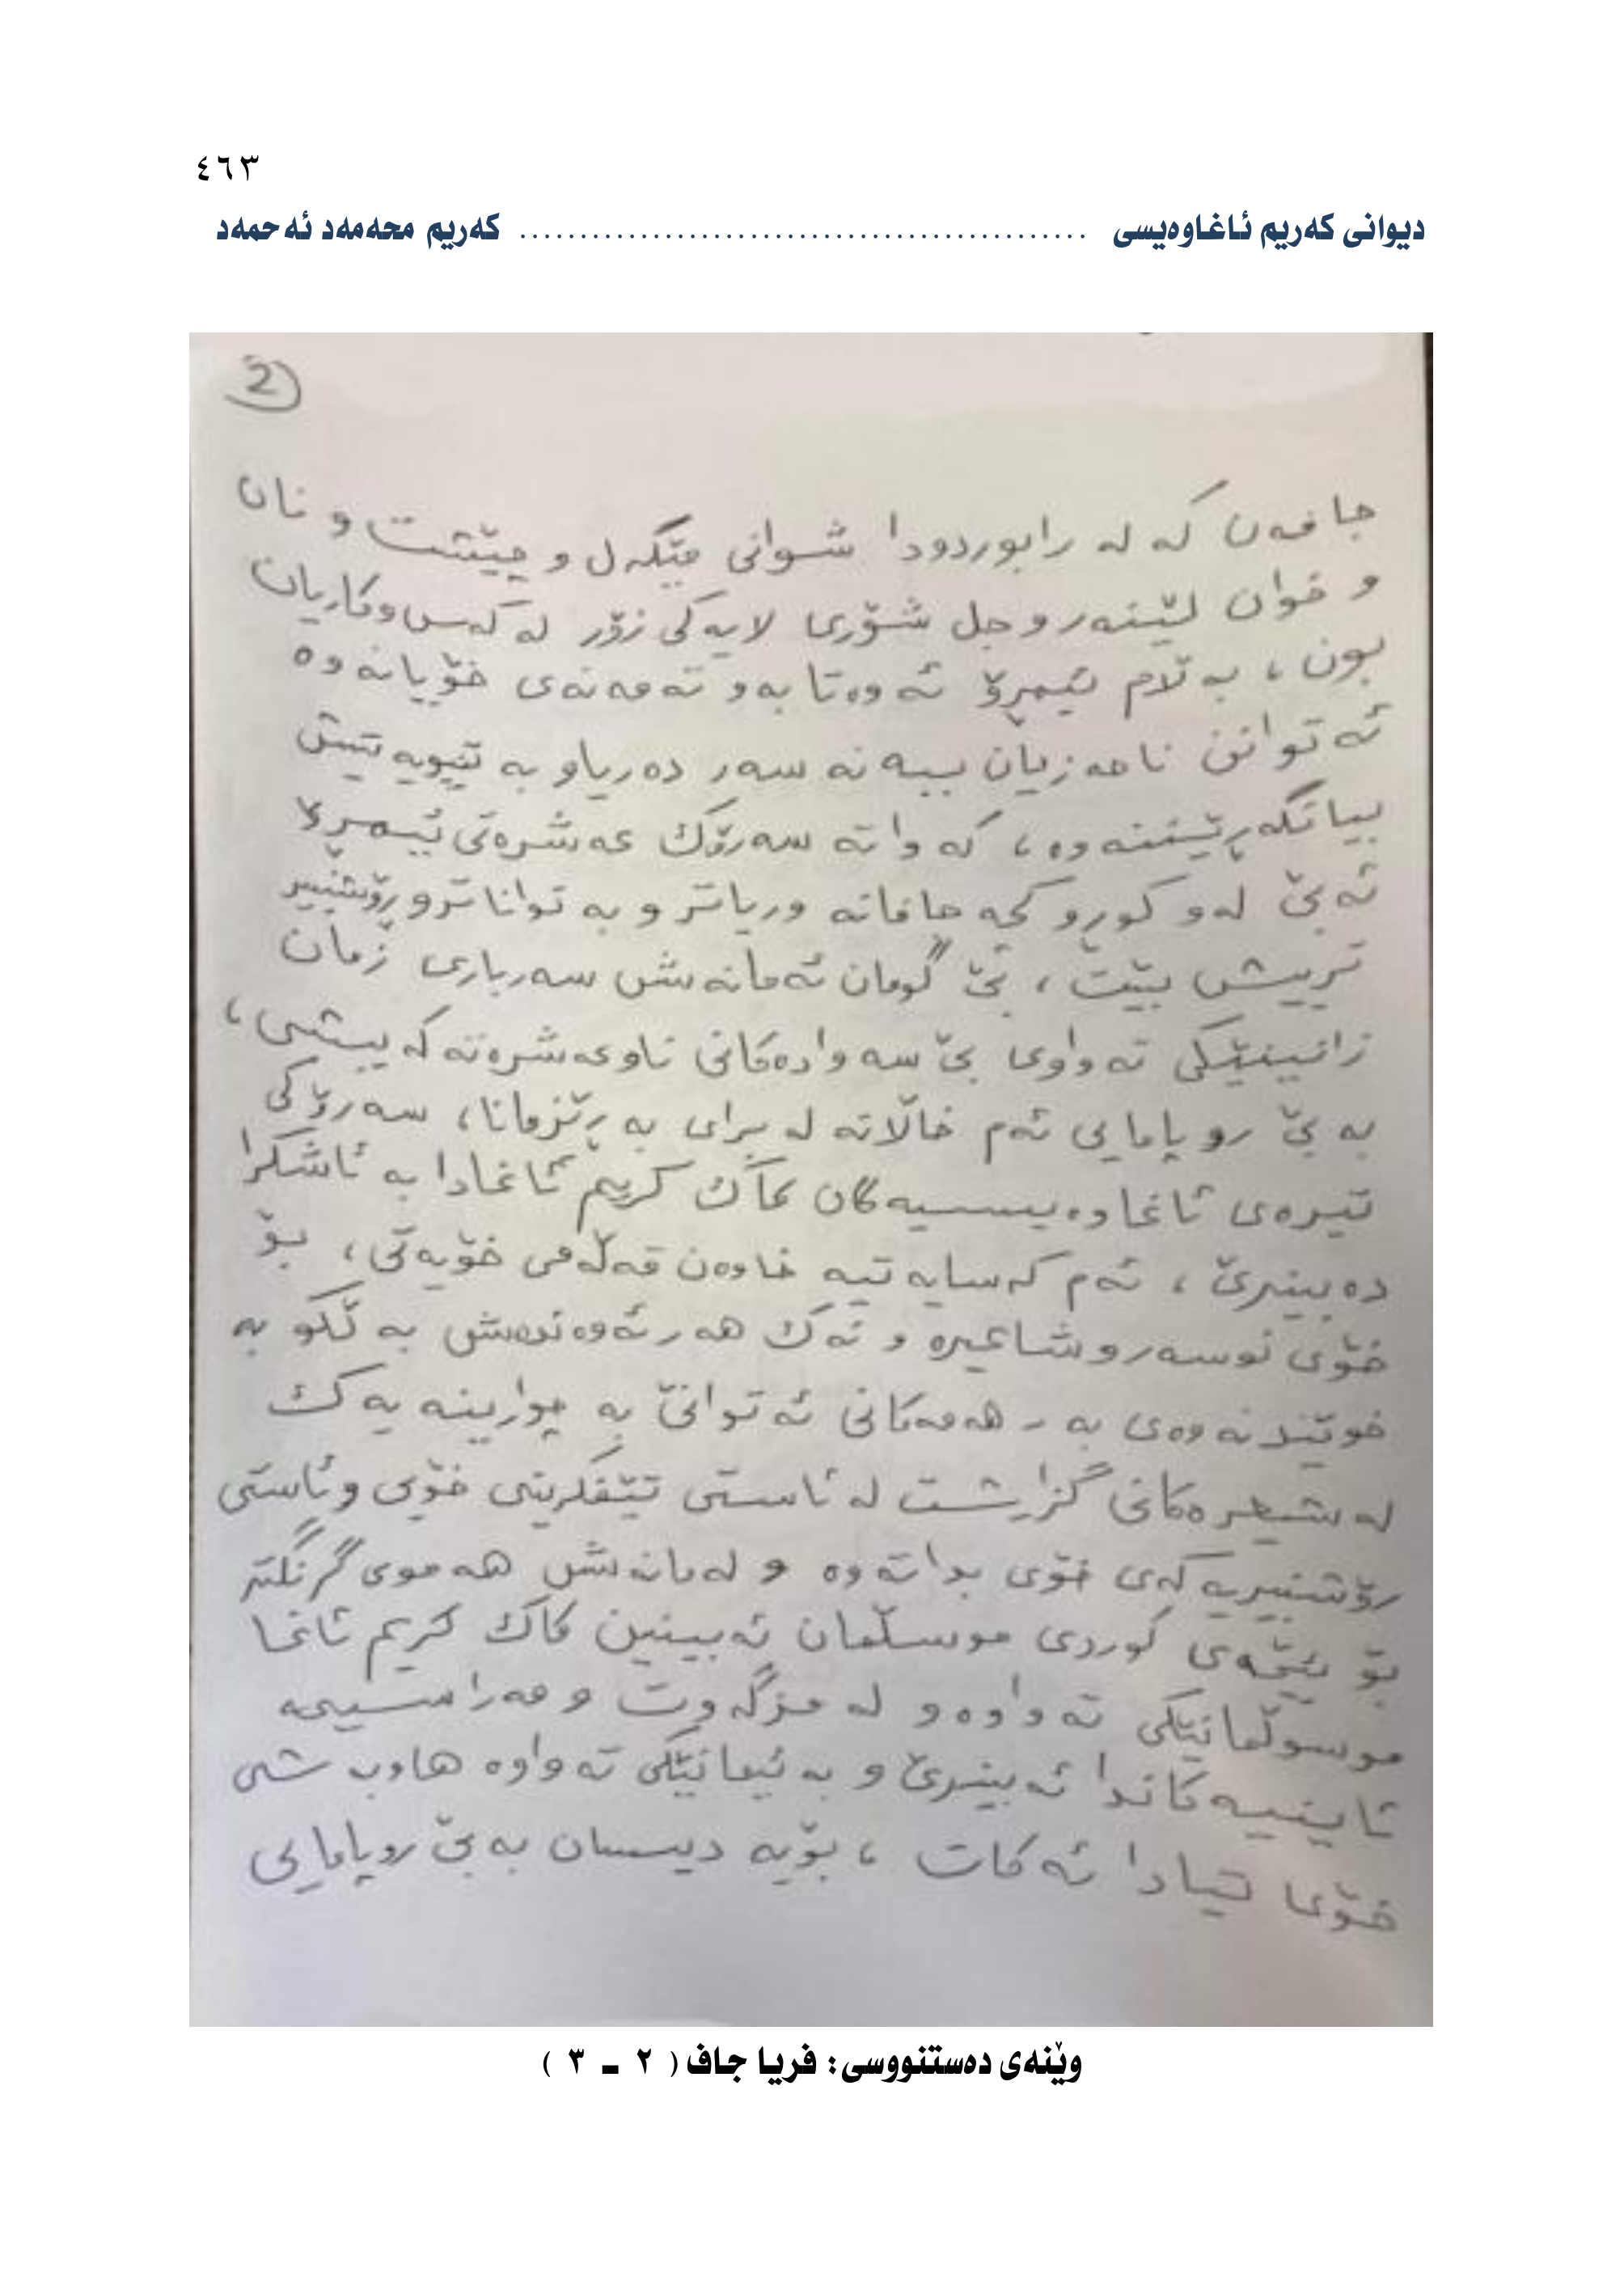 ٤٦٣
دیوانی کەریم ئاغاوەیسی ............................................... کەریم محەمەد ئەحمەد
2
جافەن کە لە رابوردودا شوانی مێگەل و چێشت و نان
و خوان لێنەر و جل شۆری لایەکی زۆر لە کەس و کاریان
بون ، بەڵام ئیمڕۆ ئەوەتا بەو تەمەنەی خۆیانەوە
ئەتوانن ناحەزیان ببەنە سەر دەریاو بە تینویەتیش
بیانگەڕێننەوە ، کەواتە سەرۆک عەشرەتی ئیمڕۆ
ئەبێ لەو کوڕو کچە جافانە وریاتر و بە تواناترو رۆشنبیر
تریش بێت ، بێ گومان ئەمانەش سەرباری زمان
زانینێکی تەواوی بێ سەوادەکانی ناو عەشرەتەکەیبشی ،
بە بێ روپامایی ئەم خاڵانە لە برای بەڕێزمانا، سەرۆکی
تیرەی ئاغاوەیسییەکان کاک کریم ئاغادا بە ئاشکرا
دەبینرێ ، ئەم کەسایەتیە خاوەن قەڵەمی خۆیەتی ، بۆ
خۆی نوسەر و شاعیرە و نەک هەر ئەوەندەش بەڵکو بە
خوێندنەوەی بەرهەمەکانی ئەتوانێ بە چوارینە یەک
لە شیعرەکانی گزارشت لە ئاستی تێفکرینی خۆی و ئاستی
رۆشنبیریەکەی خۆی بداتەوە و لەمانەش هەموی گرنگتر
بۆ ئێمەی کوردی موسڵمان ئەبینین کاک کریم ئاغا
موسوڵمانێکی تەواوە و لە مزگەوت و مەراسیمە
ئاینییەکاندا ئەبینرێ و بە ئیمانێکی تەواوە هاوبەشی
خۆی تیادا ئەکات ، بۆیە دیسان بە بێ روپامایی
وێنەی دەستنووسی: فریا جاف ( ٢ ـ ٣ )